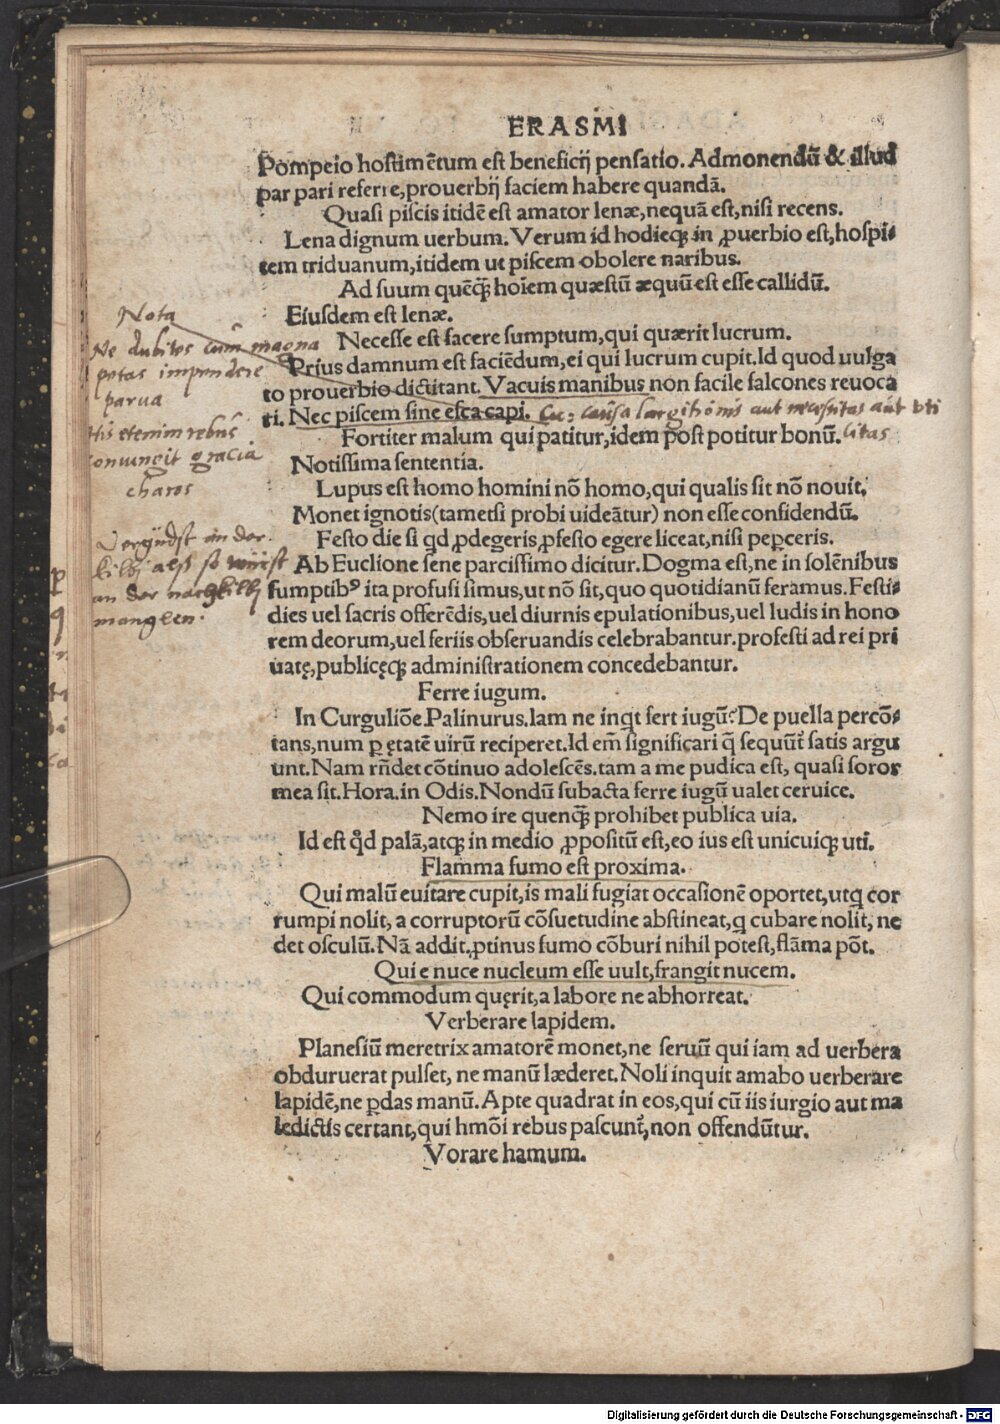 ERASMI
Pompeio hostimẽtum est beneficij pensatio. Admonendũ & illud
par pari referre, prouerbij faciem habere quandã.
Quasi piscis itidẽ est amator lenæ, nequã est, nisi recens.
Lena dignum uerbum. Verum id hodieqꝫ in ꝓuerbio est, hospi⸗
tem triduanum, itidem ut piscem obolere naribus.
Ad suum quẽqꝫ hoĩem quæstũ æquũ est esse callidũ.
Eiusdem est lenæ.
Necesse est facere sumptum, qui quærit lucrum.
Prius damnum est faciẽdum, ei qui lucrum cupit. Id quod uulga
to prouerbio dictitant. Vacuis manibus non facile falcones reuoca
ri. Nec piscem sine esca capi. causa largitionis aut necessitas aut vti
litas
Fortiter malum qui patitur, idem post potitur bonũ.
Notissima sententia.
Lupus est homo homini nõ homo, qui qualis sit nõ nouit.
Monet ignotis (tametsi probi uideãtur) non esse confidendũ.
Festo die si qd ꝓdegeris, ꝓfesto egere liceat, nisi peꝑceris.
Ab Euclione sene parcissimo dicitur. Dogma est, ne in solẽnibus
sumptibꝰ ita profusi simus, ut nõ sit, quo quotidianũ feramus. Festi⸗
dies uel sacris offerẽdis, uel diurnis epulationibus, uel ludis in hono
rem deorum, uel feriis obseruandis celebrabantur. profesti ad rei pri
uatę, publicęqꝫ administrationem concedebantur.
Ferre iugum.
In Curguliõe Palinurus. Iam ne inqt fert iugũ? De puella percõ⸗
tans, num ꝑ ętatẽ uirũ reciperet. Id em̃ significari q̃ sequũt̃ satis argu
unt. Nam rñdet cõtinuo adolescẽs. tam a me pudica est, quasi soror
mea sit. Hora. in Odis. Nondũ subacta ferre iugũ ualet ceruice.
Nemo ire quenqꝫ prohibet publica uia.
Id est qd̃ palã, atqꝫ in medio ꝓpositũ est, eo ius est unicuiqꝫ uti.
Flamma fumo est proxima.
Qui malũ euitare cupit, is mali fugiat occasionẽ oportet, utq cor
rumpi nolit, a corruptorũ cõsuetudine abstineat, q cubare nolit, ne
det osculũ. Nã addit. ꝓtinus fumo cõburi nihil potest, flãma põt.
Qui e nuce nucleum esse uult, frangit nucem.
Qui commodum quęrit, a labore ne abhorreat.
Verberare lapidem.
Planesiũ meretrix amatorẽ monet, ne seruũ qui iam ad uerbera
obduruerat pulset, ne manũ læderet. Noli inquit amabo uerberare
lapidẽ, ne ꝑdas manũ. Apte quadrat in eos, qui cũ iis iurgio aut ma
ledictis certant, qui hmõi rebus pascunt̃, non offendũtur.
Vorare hamum.
Nota
Ne dubites cum magna
petas impendere
parua
His etenim rebus
coniungit gracia
charos
an der
kilbj so
an der nachkilbj
manglen.
Digitalisierung gefördert durch die Deutsche Forschungsgemeinschaft - DFG